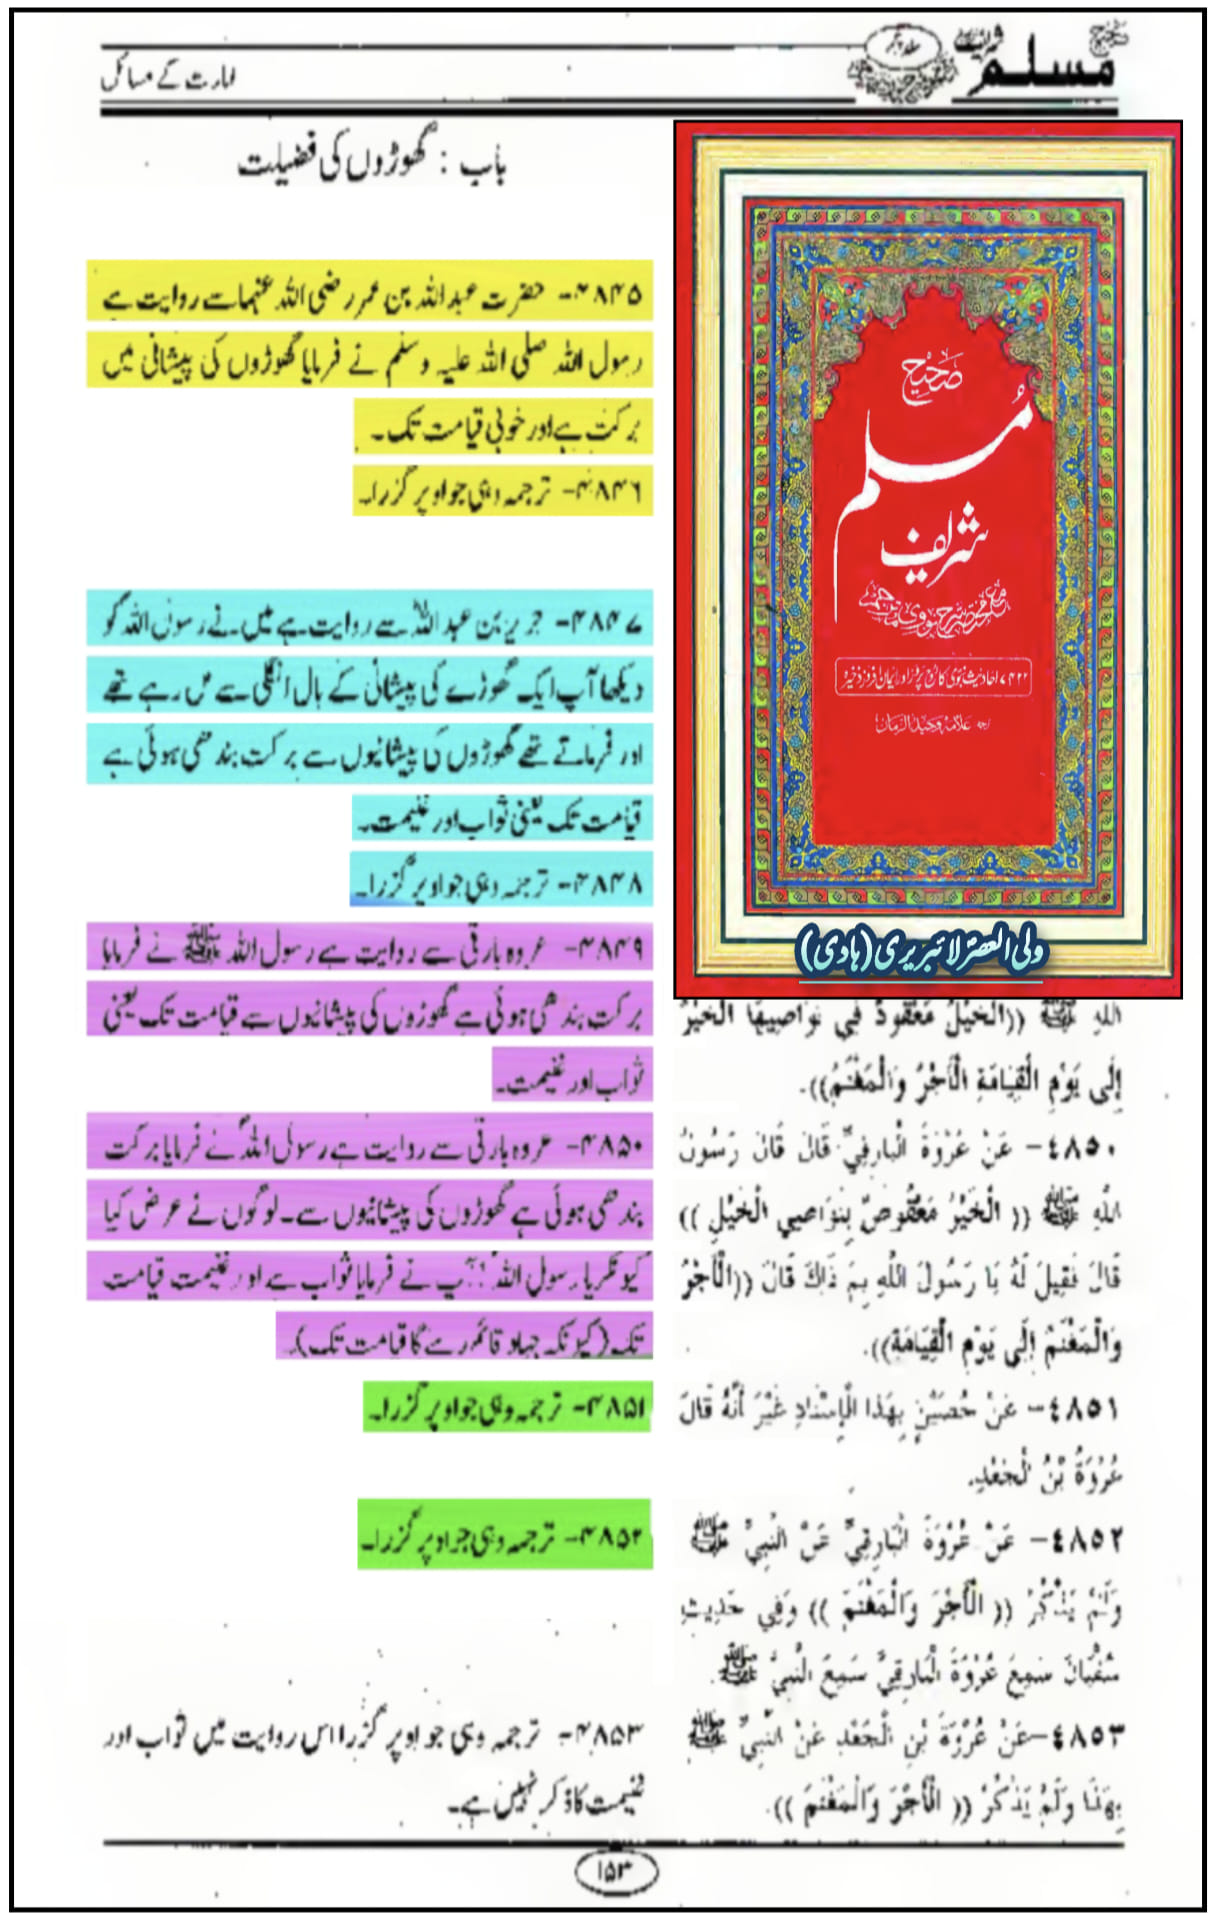 صحیح مسلم شریف
جلد پنجم
امارت کے مسائل
باب : گھوڑوں کی فضیلت
۴۸۴۵- حضرت عبداللہ بن عمر رضی اللہ عنہما سے روایت ہے
رسول اللہ صلی اللہ علیہ وسلم نے فرمایا گھوڑوں کی پیشانی میں
برکت ہے اور خوبی قیامت تک۔
۴۸۴۶- ترجمہ وہی جو اوپر گزرا۔
۴۸۴۷- جریر بن عبداللہ سے روایت ہے میں نے رسول اللہ کو
دیکھا آپ ایک گھوڑے کی پیشانی کے بال انگلی سے مل رہے تھے
اور فرماتے تھے گھوڑوں کی پیشانیوں سے برکت بندھی ہوئی ہے
قیامت تک یعنی ثواب اور غنیمت۔
۴۸۴۸- ترجمہ وہی جو اوپر گزرا۔
۴۸۴۹- عروہ بارقی سے روایت ہے رسول اللہ ﷺ نے فرمایا
برکت بندھی ہوئی ہے گھوڑوں کی پیشانیوں سے قیامت تک یعنی
ثواب اور غنیمت۔
۴۸۵۰- عروہ بارقی سے روایت ہے رسول اللہ نے فرمایا برکت
بندھی ہوئی ہے گھوڑوں کی پیشانیوں سے۔ لوگوں نے عرض کیا
کیونکر یا رسول اللہ ! آپ نے فرمایا ثواب ہے اور غنیمت قیامت
تک (کیونکہ جہاد قائم رہے گا قیامت تک)۔
۴۸۵۱- ترجمہ وہی جو اوپر گزرا۔
۴۸۵۲- ترجمہ وہی جو اوپر گزرا۔
۴۸۵۳- ترجمہ وہی جو اوپر گزرا اس روایت میں ثواب اور
غنیمت کا ذکر نہیں ہے۔
صحیح
مسلم
شریف
مع مختصر شرح نووی مترجم
۷۴۲۲ احادیث نبوی کا
علامہ وحید الزمان
ولی العصر لائبریری (ہادی)
اللهِ ﷺ ((الْخَيْلُ مَعْقُودٌ فِي نَوَاصِيهَا الْخَيْرُ
إِلَى يَوْمِ الْقِيَامَةِ الْأَجْرُ وَالْمَغْنَمُ)).
٤٨٥٠- عَنْ عُرْوَةَ الْبَارِقِيِّ قَالَ قَالَ رَسُولُ
اللهِ ﷺ (( الْخَيْرُ مَعْقُوصٌ بِنَوَاصِي الْخَيْلِ ))
قَالَ فَقِيلَ لَهُ يَا رَسُولَ اللهِ بِمَ ذَاكَ قَالَ ((الْأَجْرُ
وَالْمَغْنَمُ إِلَى يَوْمِ الْقِيَامَةِ)).
٤٨٥١- عَنْ حُصَيْنٍ بِهَذَا الْإِسْنَادِ غَيْرَ أَنَّهُ قَالَ
عُرْوَةُ بْنُ الْجَعْدِ.
٤٨٥٢- عَنْ عُرْوَةَ الْبَارِقِيِّ عَنْ النَّبِيِّ ﷺ
وَلَمْ يَذْكُرْ (( الْأَجْرَ وَالْمَغْنَمَ )) وَفِي حَدِيثِ
سُفْيَانَ سَمِعَ عُرْوَةَ الْبَارِقِيَّ سَمِعَ النَّبِيَّ ﷺ.
٤٨٥٣- عَنْ عُرْوَةَ بْنِ الْجَعْدِ عَنْ النَّبِيِّ ﷺ
بِهَذَا وَلَمْ يَذْكُرْ (( الْأَجْرَ وَالْمَغْنَمَ )).
۱۵۳